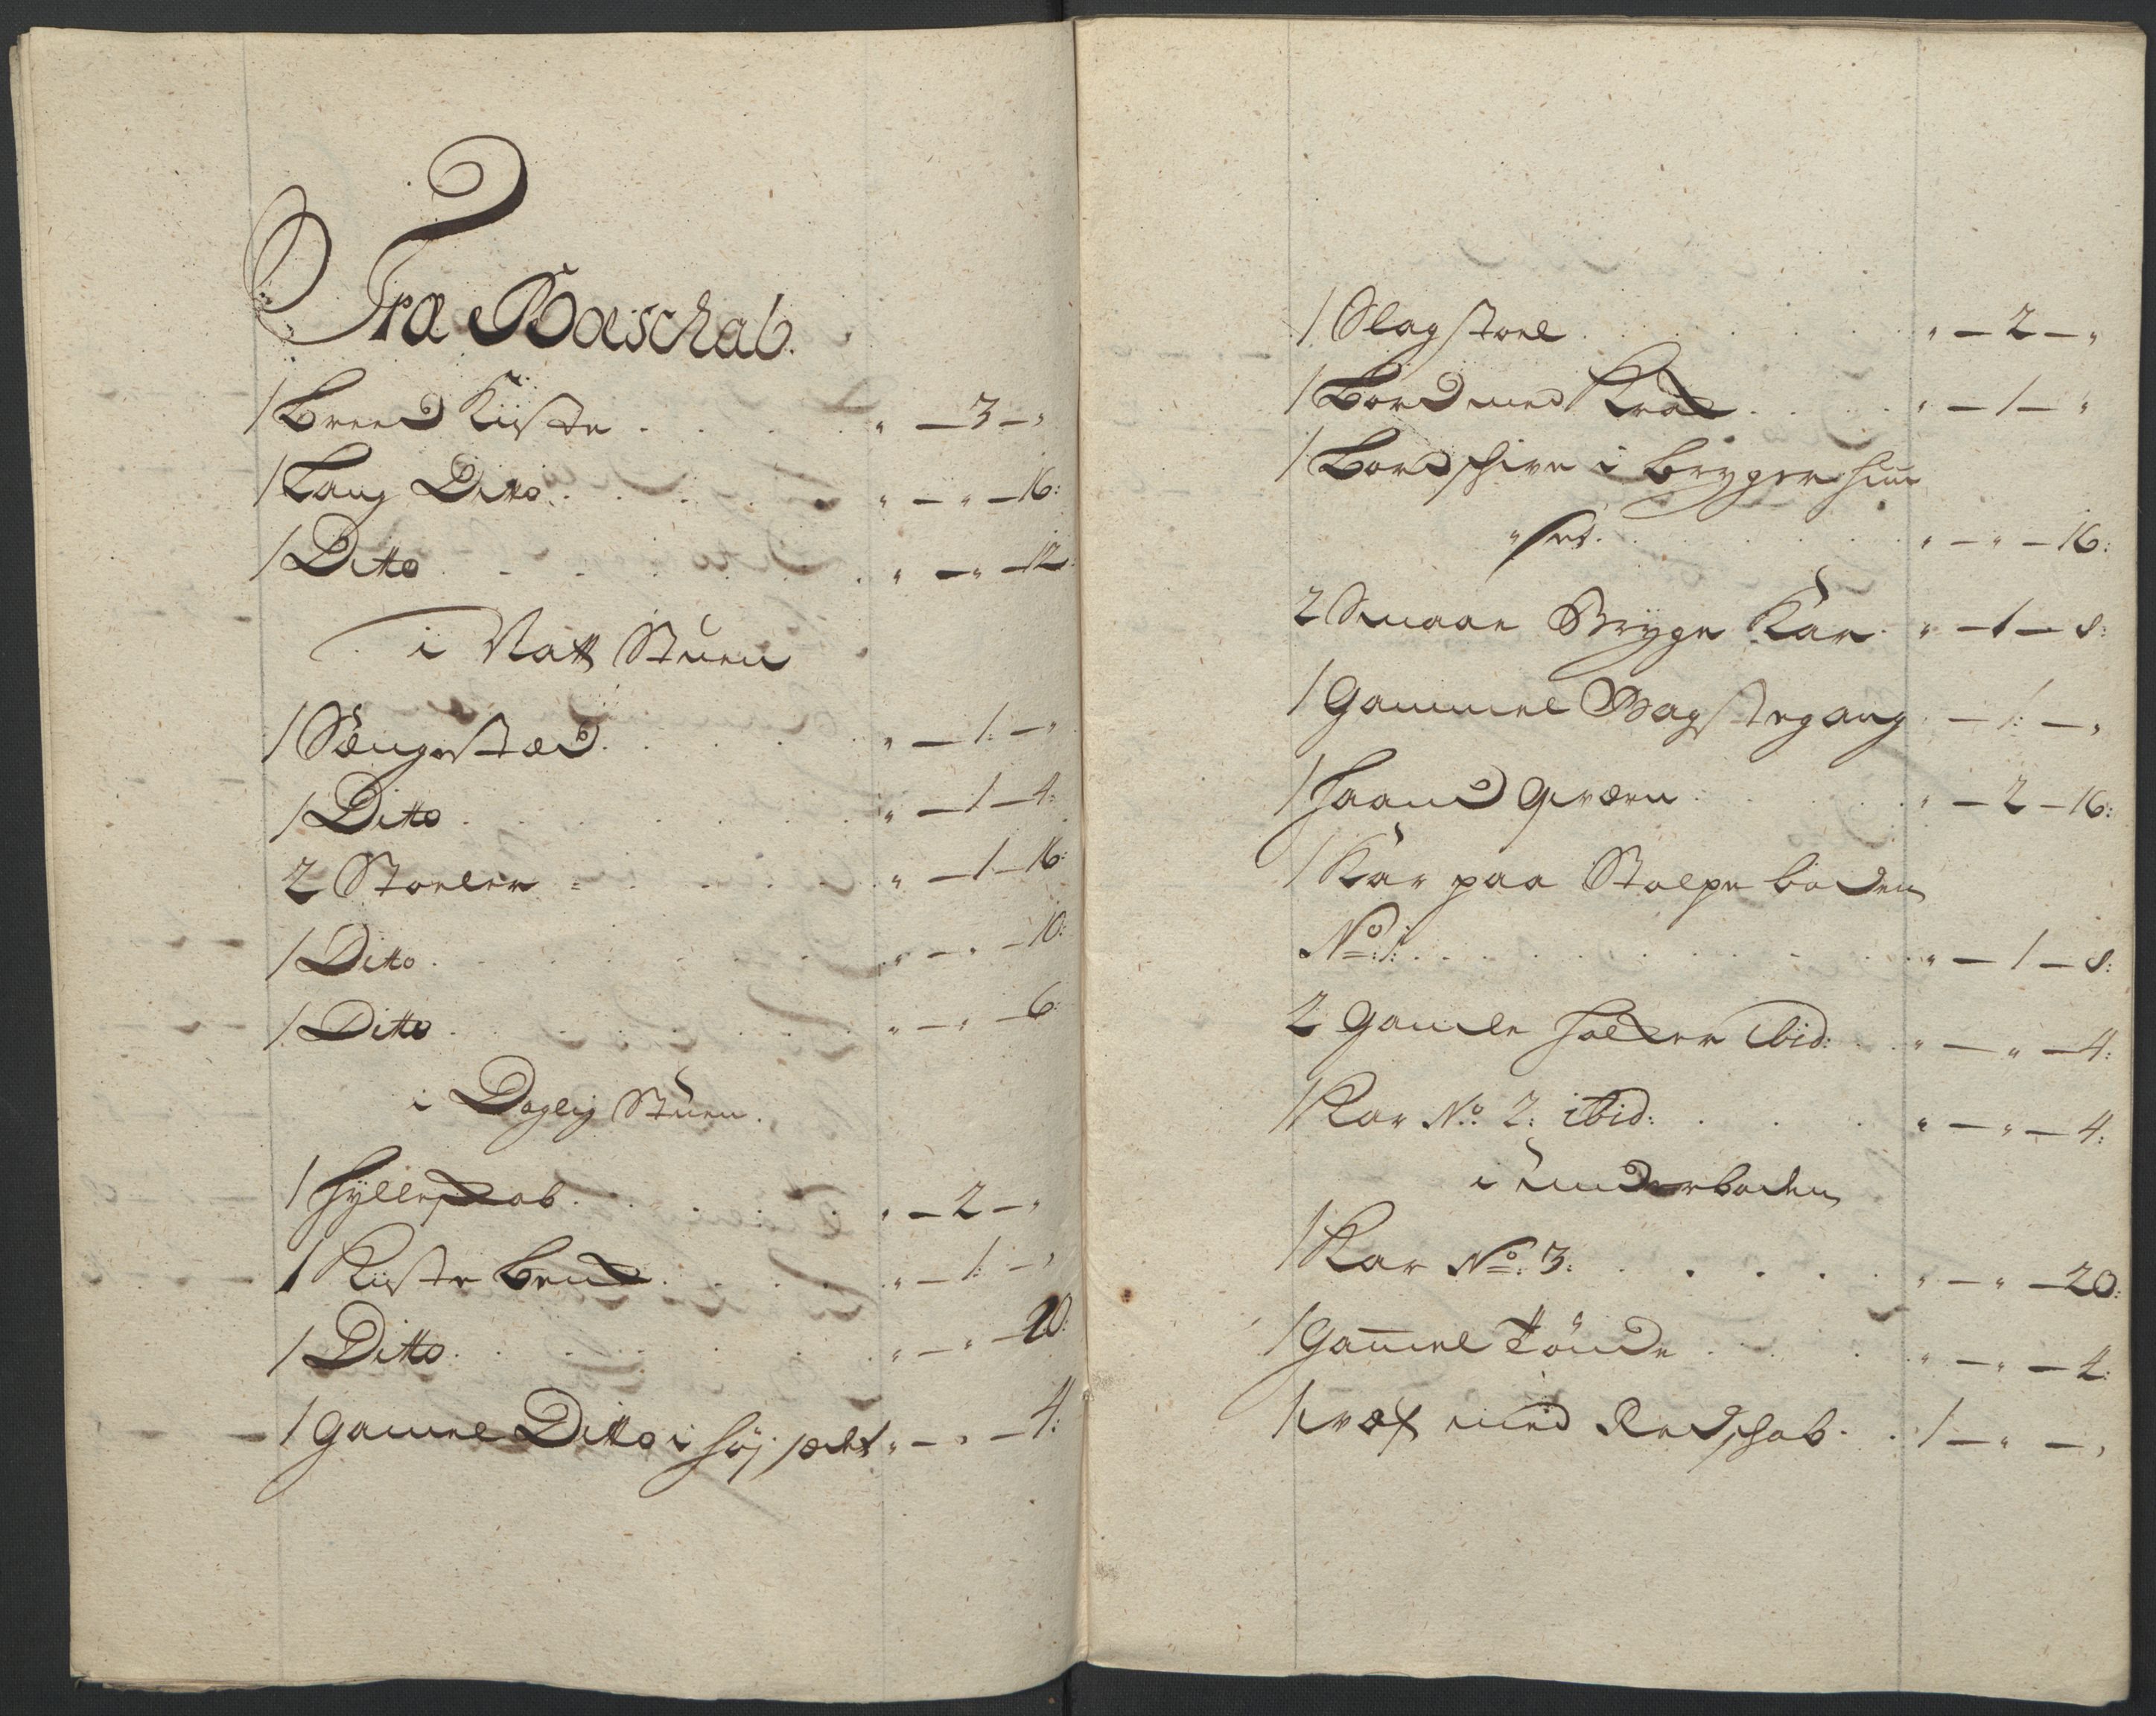 Træ Boeschab.
1 Breed Kiiste . . . . " — 3 — "
1 Lang Ditto . . . . . " — " — 16:
1 Ditto . . . . . . . " — " — 12:
i Natt Stuen
1 Sængestæd . . . . . " — 1: — "
1 Ditto . . . . . . . " — 1 — 4:
2 Stoeler . . . . . . " — 1 — 16:
1 Ditto . . . . . . . " — " — 10:
1 Ditto . . . . . . . " — " — 6:
i Daglig Stuen.
1 Hylleskab . . . . . " — 2 — "
1 Kiiste Benk . . . . " — 1: — "
1 Ditto . . . . . . . " — " —
1 Gamel Ditto i Höj sædet " — " — 4:
1 Slagstoel . . . . . " — 2 — "
1 Bord med Krak . . . " — 1 — "
1 Bordschive i Brygerhuu
"set. . . . . . . . " — " — 16:
2 Smaae Brygge Kar . " — 1 — 8:
1 Gammel Bagstegang " — 1: — "
1 Haand Qværn . . . . " — 2 — 16:
1 Kar paa Stolpe boden
No: 1: . . . . . . . " — 1 — 8:
2 Gamle Holker ibid: . " — " — 4:
1 Kar No: 2: ibid: . . " — " — 4:
i Underboden
1 Kar No: 3: . . . . . " — " — 20:
1 Gam̄el Tönde . . . . " — " — 4:
1 væf med Redschab . . 1 — " — "